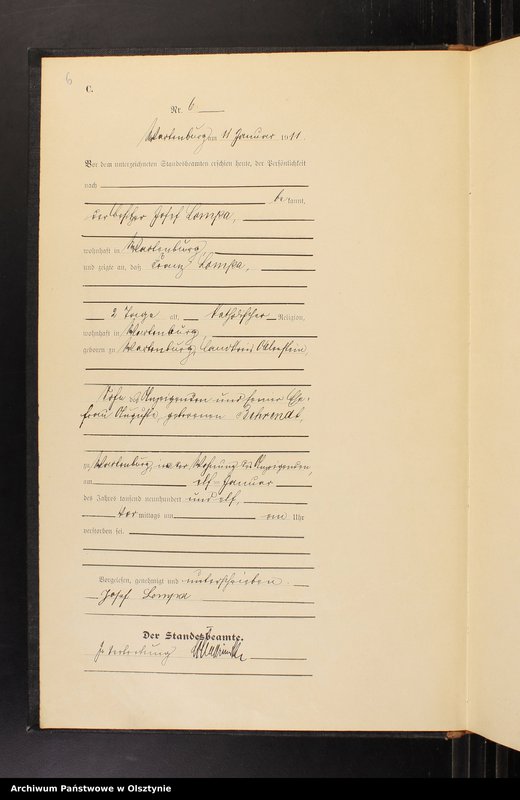 6
C.
Nr. 6
Wartenburg am 11 Januar 1911.
Vor dem unterzeichneten Standesbeamten erschien heute, der Persönlichkeit
nach
be kannt,
der Besitzer Josef Lompa,
wohnhaft in Wartenburg
und zeigte an, daß Franz Lompa,
2 Tage alt, katholischer Religion,
wohnhaft in Wartenburg
geboren zu Wartenburg, Landkreis Allenstein
Sohn des Anzeigenden und seiner Ehe-
frau Auguste, geborenen Behrendt,
zu Wartenburg, in der Wohnung des Anzeigenden,
am elf Januar
des Jahres tausend neunhundert und elf,
vor mittags um Uhr
verstorben sei.
Vorgelesen, genehmigt und unterschrieben.
Josef Lompa
Der Standesbeamte.
In Vertretung
Archiwum Państwowe w Olsztynie